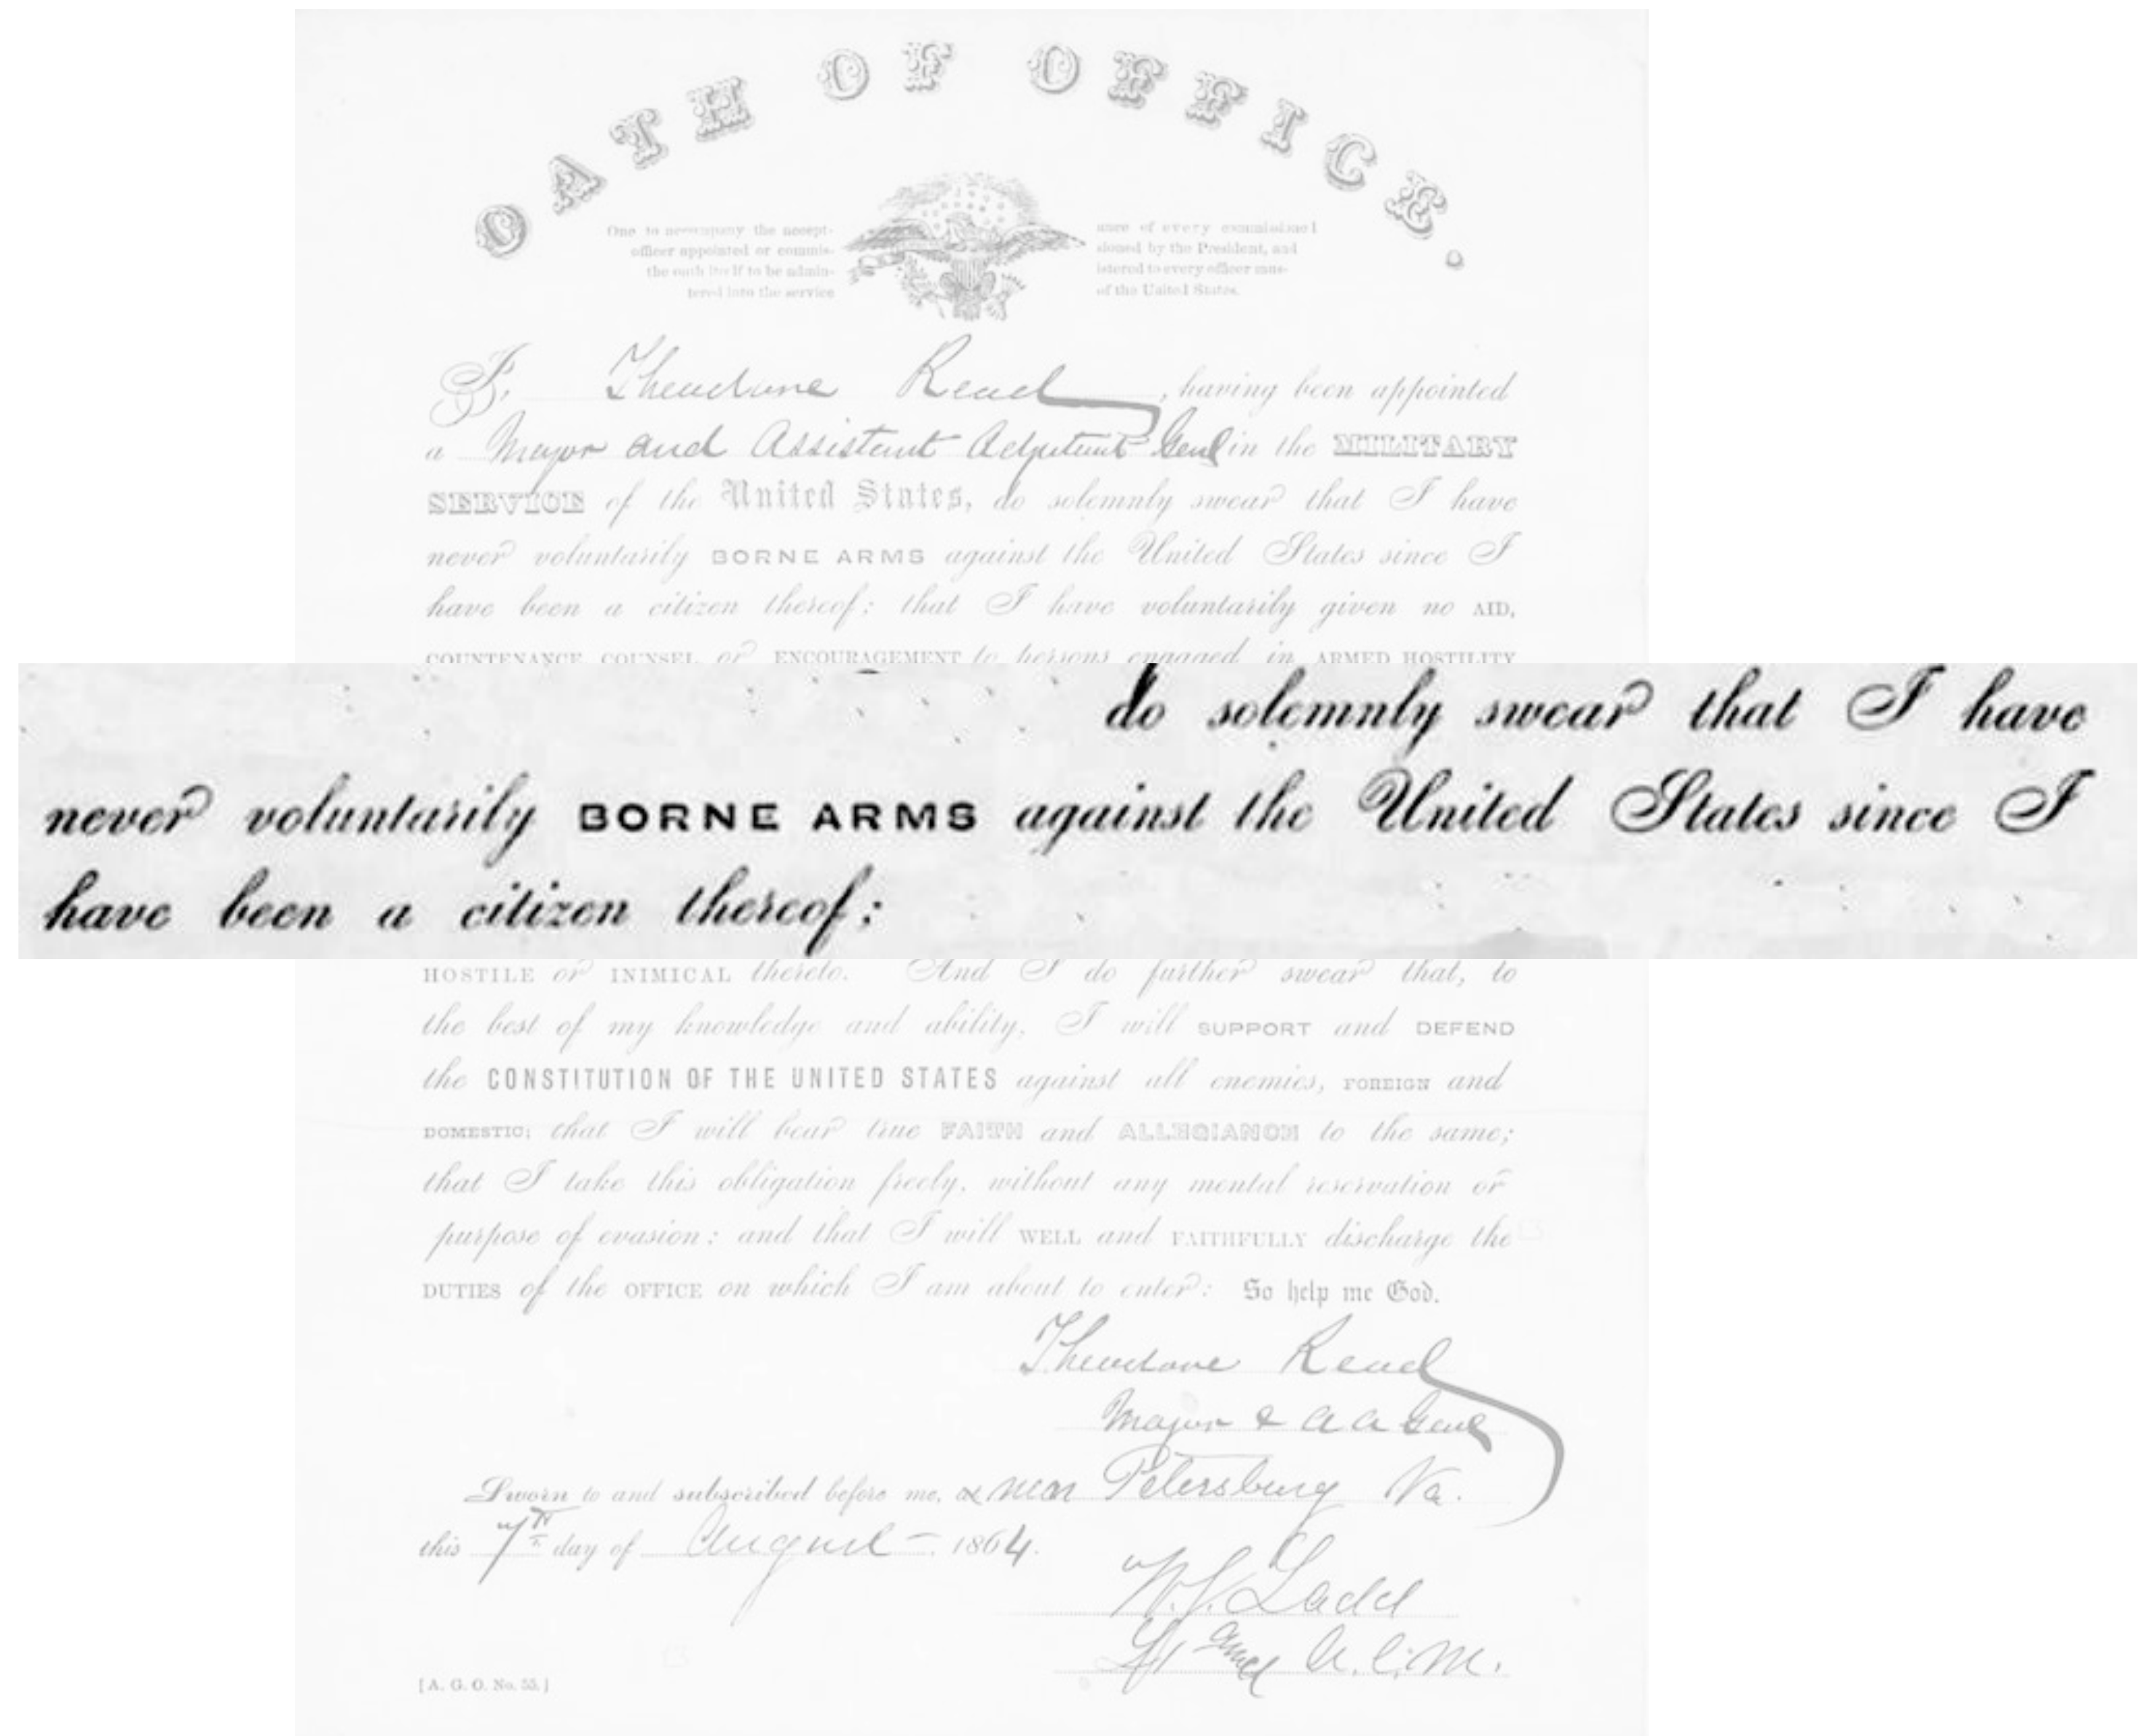 OATH OF OFFICE.
One to accompany the accept-
officer appointed or commis-
the oath itself to be admin-
tered into the service
ance of every commissioned
sioned by the President, and
istered to every officer mus-
of the United States.
I, Theodore Read, having been appointed
a Major and Assistant Adjutant Genl in the MILITARY
SERVICE of the United States, do solemnly swear that I have
never voluntarily BORNE ARMS against the United States since I
have been a citizen thereof: that I have voluntarily given no AID,
COUNTENANCE, COUNSEL or ENCOURAGEMENT to persons engaged in ARMED HOSTILITY
do solemnly swear that I have
never voluntarily BORNE ARMS against the United States since I
have been a citizen thereof;
HOSTILE or INIMICAL thereto. And I do further swear that, to
the best of my knowledge and ability, I will SUPPORT and DEFEND
the CONSTITUTION OF THE UNITED STATES against all enemies, FOREIGN and
DOMESTIC; that I will bear true FAITH and ALLEGIANCE to the same;
that I take this obligation freely, without any mental reservation or
purpose of evasion: and that I will WELL and FAITHFULLY discharge the
DUTIES of the OFFICE on which I am about to enter: So help me God.
Theodore Read
Major & A A Genl
Sworn to and subscribed before me, at near Petersburg Va.
this 7th day of August 1864.
W. J. Ladd
Lt A. C. M.
[A. G. O. No. 55.]